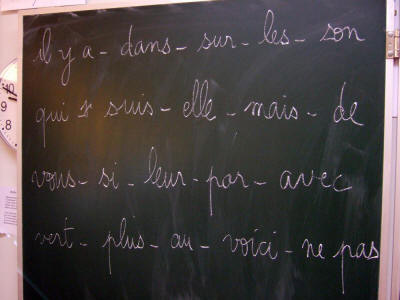 il y a - dans - sur - les - son
qui suis - elle - mais - de
vous - si - leur - par - avec
vert - plus - au - voici - ne pas
10
9
8